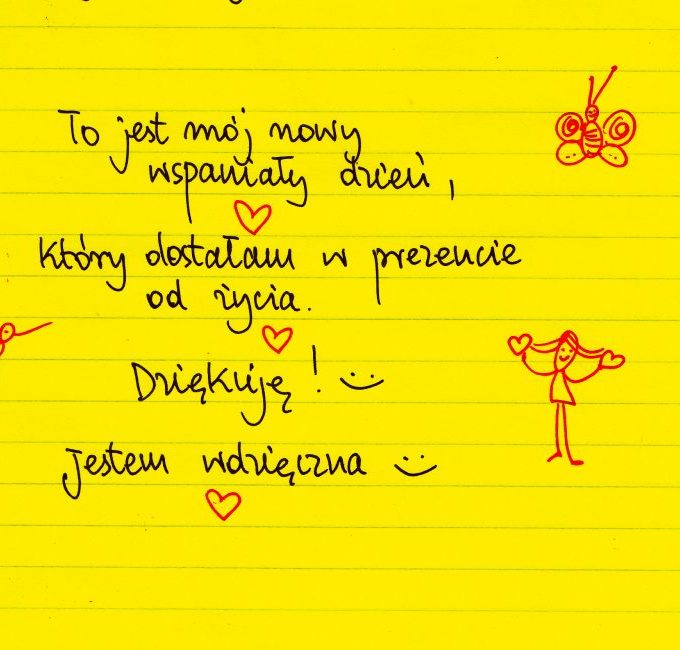 To jest mój nowy
wspaniały dzień,
który dostałam w prezencie
od życia.
Dziękuję! :)
Jestem wdzięczna :)